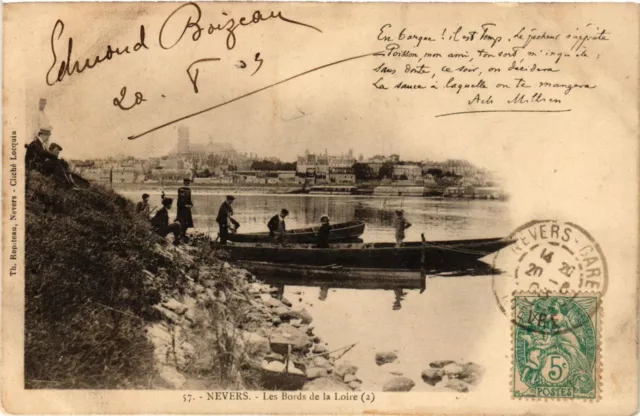 Edmond Boizeau
20 - V - 05
En barque ! il est Temps. Le pêcheur s'apprête
Poisson, mon ami, ton sort m'inquiète,
Sans doute, ce soir, on décidera
La sauce à laquelle on te mangera
Ach. Millien
Th. Ropiteau, Nevers - Cliché Locquin
NEVERS-GARE
14
20
NIÈVRE
5c
POSTES
57. - NEVERS. - Les Bords de la Loire (2)